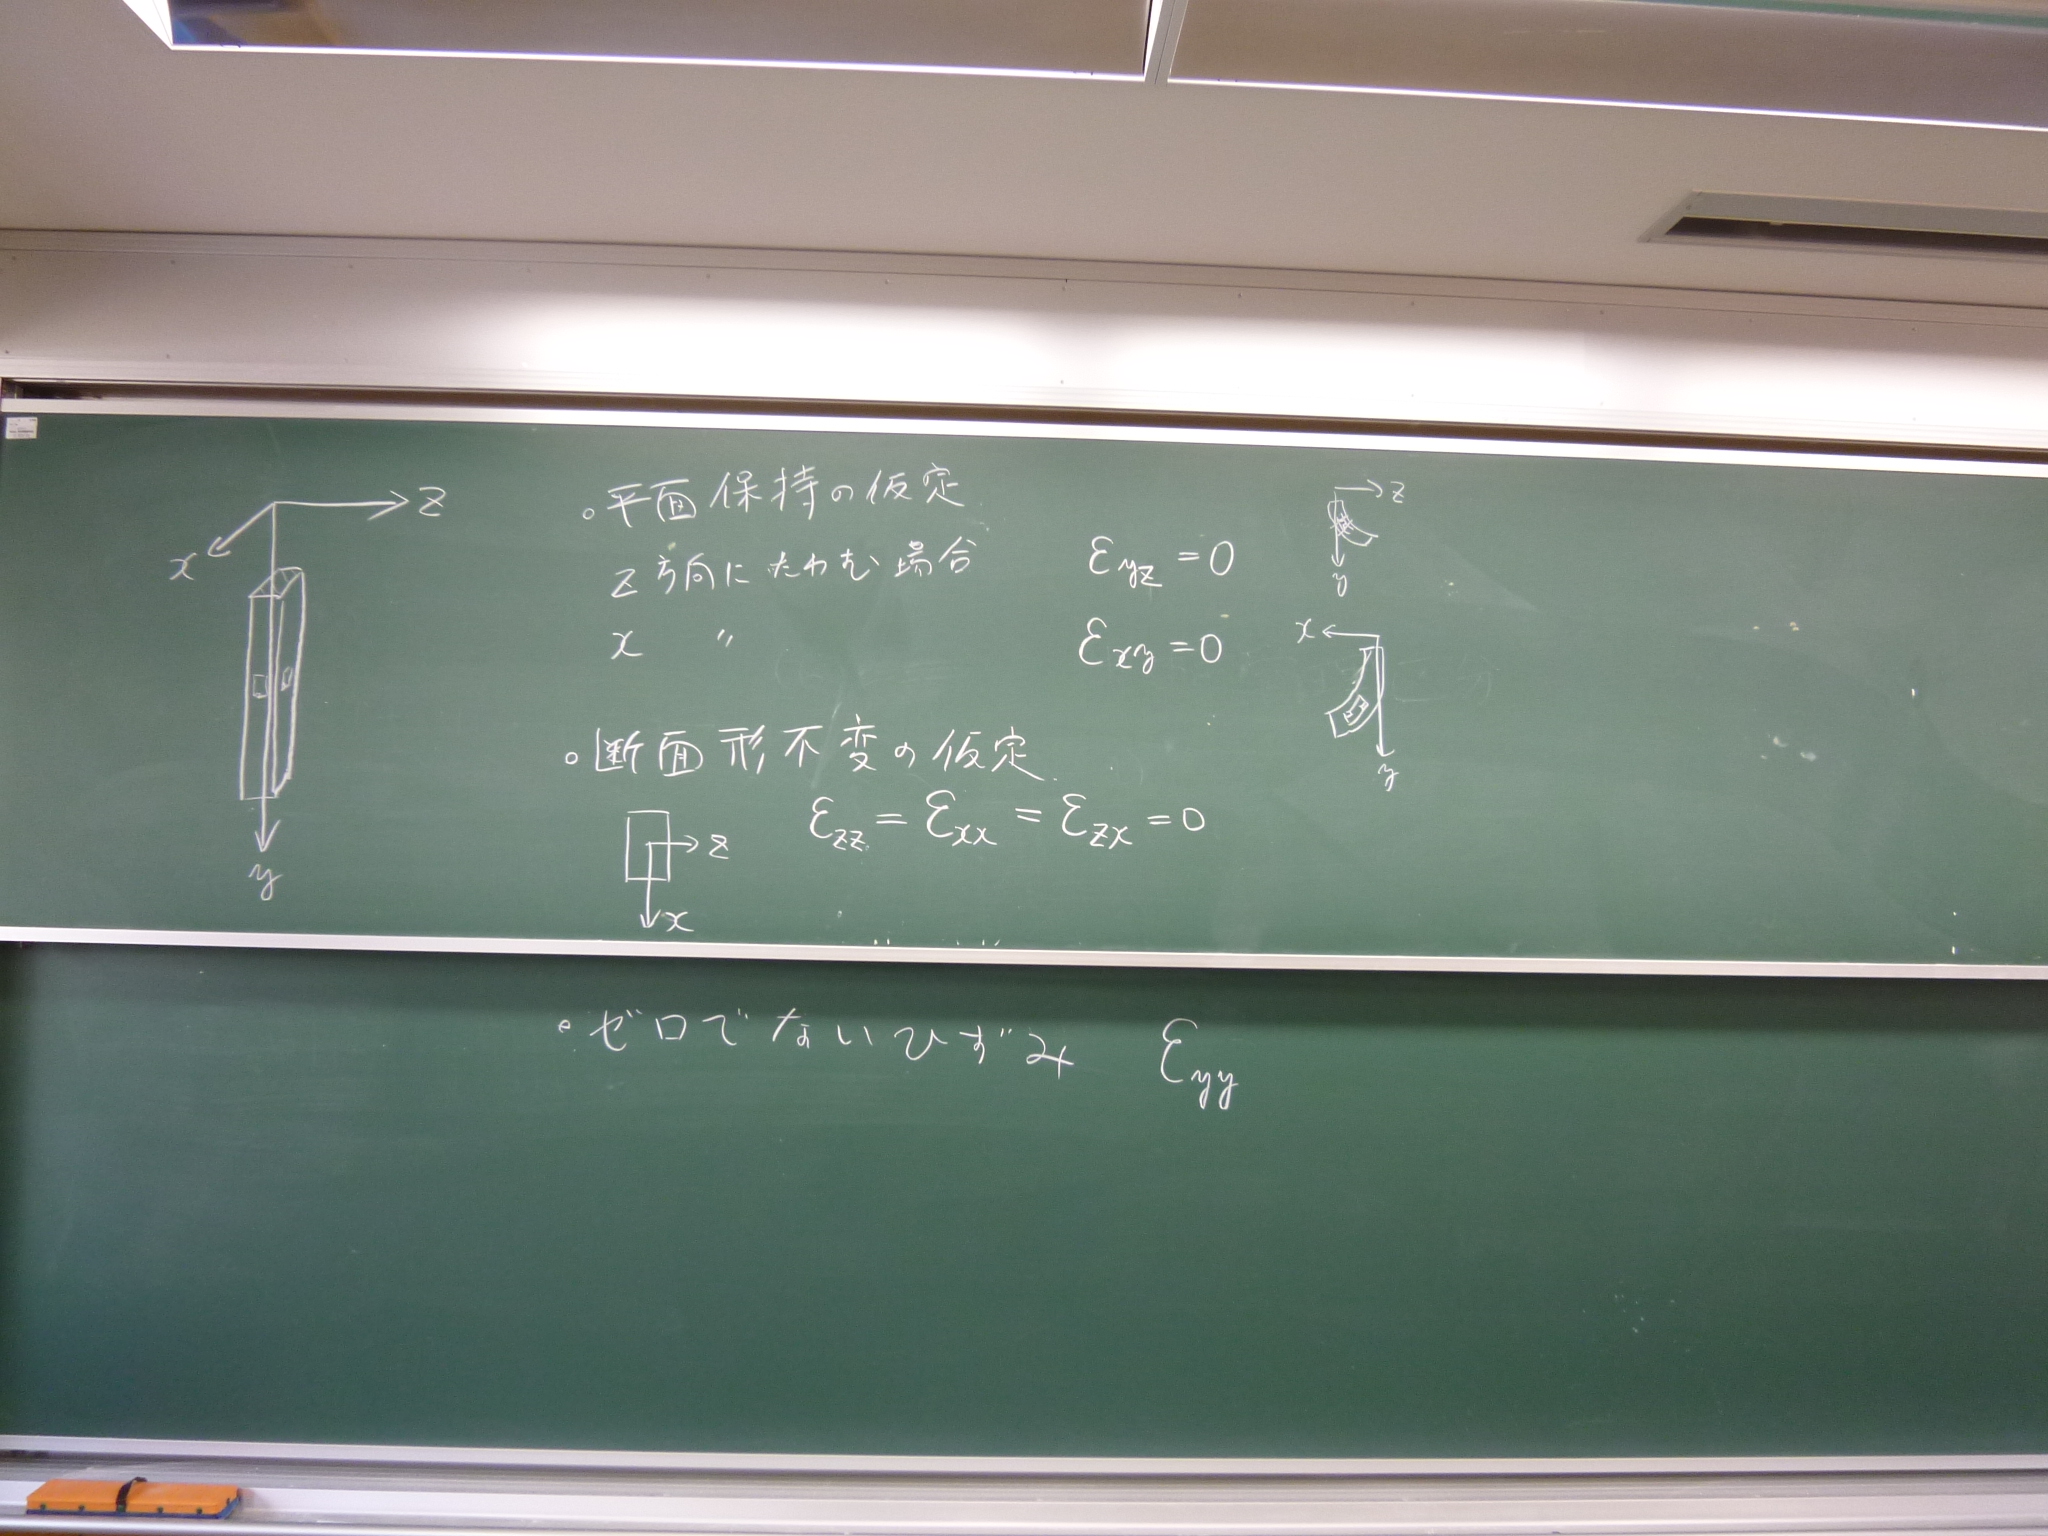 z
x
y
。平面保持の仮定
z方向にたわむ場合 εyz = 0
x 〃 εxy = 0
z
y
x
y
。断面形不変の仮定
εzz = εxx = εzx = 0
z
x
・ゼロでないひずみ εyy